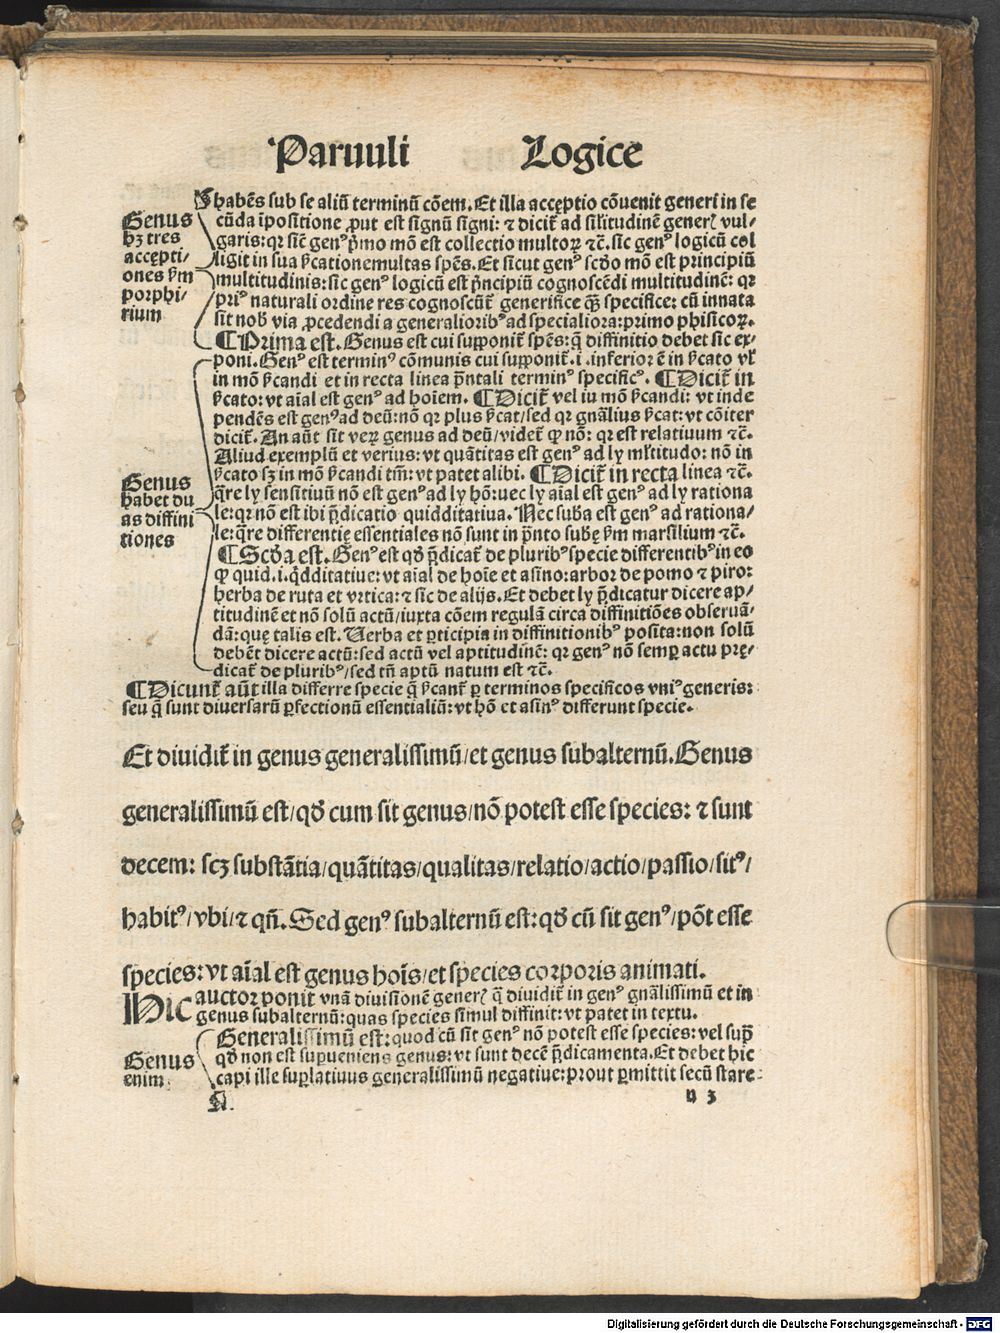 Paruuli Logice
habēs sub se aliū terminū cōem. Et illa acceptio cōuenit generi in se
cūda īpositione ꝓut est signū signi: ⁊ dicit᷑ ad sil'itudinē generꝭ vul
garis: qꝛ sic̄ genꝰ p̄mo mō est collectio multoꝝ ⁊c̄. sic genꝰ logicū col
ligit in sua ẜcatione multas spēs. Et sicut genꝰ scd̓o mō est principiū
multitudinis: sic genꝰ logicū est p̄ncipiū cognoscēdi multitudinē: qꝛ
priꝰ naturali ordine res cognoscūt᷑ generifice q̄ꝫ specifice: cū innata
sit nob̓ via ꝓcedendi a generalioribꝰ ad specialiora: primo phisicoꝝ.
Genus
hꝫ tres
accepti⸗
ones ẜm
porphi⸗
rium
¶ Prima est. Genus est cui supponit᷑ spēs: q̄ diffinitio debet sic ex⸗
poni. Genꝰ est terminꝰ cōmunis cui supponit᷑ .i. inferior ē in ẜcato vl̓
in mō ẜcandi et in recta linea p̄ntali terminꝰ specificꝰ. ¶ Dicit᷑ in
ẜcato: vt aīal est genꝰ ad hoīem. ¶ Dicit᷑ vel iu mō ẜcandi: vt inde
pendēs est genꝰ ad deū: nō qꝛ plus ẜcat/ sed qꝛ gn̄alius ẜcat: vt cōiter
dicit᷑. An aūt sit veꝝ genus ad deū/ videt᷑ ꝙ nō: qꝛ est relatiuum ⁊c̄.
Aliud exemplū et verius: vt quātitas est genꝰ ad ly ml̓titudo: nō in
ẜcato sꝫ in mō ẜcandi tm̄: vt patet alibi. ¶ Dicit᷑ in recta linea ⁊c̄.
q̄re ly sensitiuū nō est genꝰ ad ly hō: uec ly aīal est genꝰ ad ly rationa
le: qꝛ nō est ibi p̄dicatio quidditatiua. Nec sub̓a est genꝰ ad rationa⸗
le: q̄re differentię essentiales nō sunt in p̄nto sub̓ę ẜm marsilium ⁊c̄.
Genus
habet du
as diffini
tiones
¶ Scd̓a est. Genꝰ est qd̓ p̄dicat᷑ de pluribꝰ specie differentibꝰ in eo
ꝙ quid .i. q̇dditatiue: vt aīal de hoīe et asino: arbor de pomo ⁊ piro:
herba de ruta et vrtica: ⁊ sic de alijs. Et debet ly p̄dicatur dicere ap⸗
titudinē et nō solū actū/ iuxta cōem regulā circa diffinitiōes obseruā⸗
dā: quę talis est. Uerba et ꝑticipia in diffinitionibꝰ posita: non solū
debēt dicere actū: sed actū vel aptitudinē: qꝛ genꝰ nō semꝑ actu prę⸗
dicat᷑ de pluribꝰ/ sed tn̄ aptū natum est ⁊c̄.
¶ Dicunt᷑ aūt illa differre specie q̄ ẜcant᷑ ꝑ terminos specificos vniꝰ generis:
seu q̄ sunt diuersarū ꝑfectionū essentialiū: vt hō et asinꝰ differunt specie.
Et diuidit᷑ in genus generalissimū/ et genus subalternū. Genus
generalissimū est/ qd̓ cum sit genus/ nō potest esse species: ⁊ sunt
decem: scꝫ substātia/ quātitas/ qualitas/ relatio/ actio/ passio/ sitꝰ/
habitꝰ/ vbi/ ⁊ qn̄. Sed genꝰ subalternū est: qd̓ cū sit genꝰ/ pōt esse
species: vt aīal est genus hoīs/ et species corporis animati.
Hic auctor ponit vnā diuisionē generꝭ q̄ diuidit᷑ in genꝰ gn̄alissimū et in
genus subalternū: quas species simul diffinit: vt patet in textu.
Genus
enim
Generalissimū est: quod cū sit genꝰ nō potest esse species: vel sup̄
qd̓ non est supueniens genus: vt sunt decē p̄dicamenta. Et debet hic
capi ille suꝑlatiuus generalissimū negatiue: prout ꝑmittit secū stare
n 3
Digitalisierung gefördert durch die Deutsche Forschungsgemeinschaft - DFG